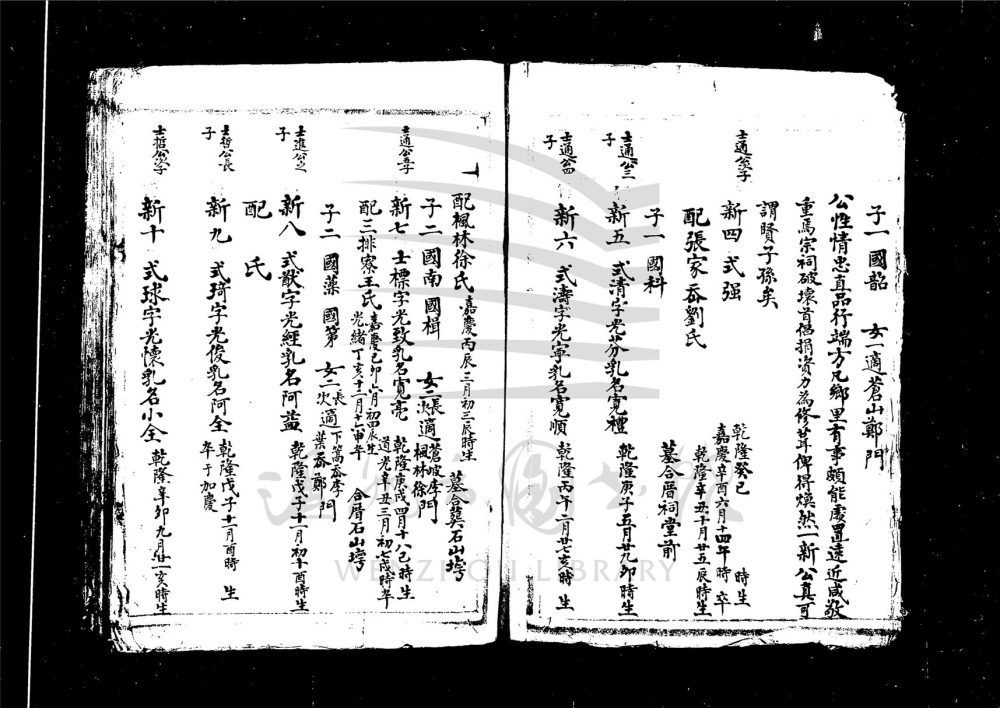 子一 國韶 女一適蒼山鄭門
公性情忠直品行端方凡鄉里有事頗能處置遠近咸敬
重焉宗祠破壞首倡捐資力為修葺俾得煥然一新公真可
謂賢子孫矣
士通公 子
新四 式强 乾隆癸巳 時生
嘉慶辛酉六月十四午時卒
配張家岙劉氏 乾隆辛丑十月廿五辰時生
子一 國科 墓合厝祠堂前
士通公三子
新五 式清字光芬乳名寬禮 乾隆庚子五月廿九卯時生
士通公四子
新六 式濤字光寧乳名寬順 乾隆丙午二月廿七亥時生
配楓林徐氏 嘉慶丙辰三月初三辰時生 墓合龔石山塆
子二 國南 國楫 女二長適蒼坡李門次適楓林徐門
士通公五子
新七 士標字光致乳名寬亮 乾隆庚戌四月十八巳時生
道光辛丑三月初七戌時卒
配三排寮王氏 嘉慶己卯八月初四辰生
光緒丁亥十二月十六申卒 合厝石山塆
子二 國藻 國第 女二長適下嵩岙李門次適葉岙鄭門
士進公三子
新八 式猷字光經乳名阿益 乾隆戊子十一月初十酉時生
配 氏
士哲公長子
新九 式琦字光俊乳名阿全 乾隆戊子十一月酉時 生
卒于加慶
士哲公次子
新十 式球字光懷乳名小全 乾隆辛卯九月廿一亥時生
WENZHOU LIBRARY